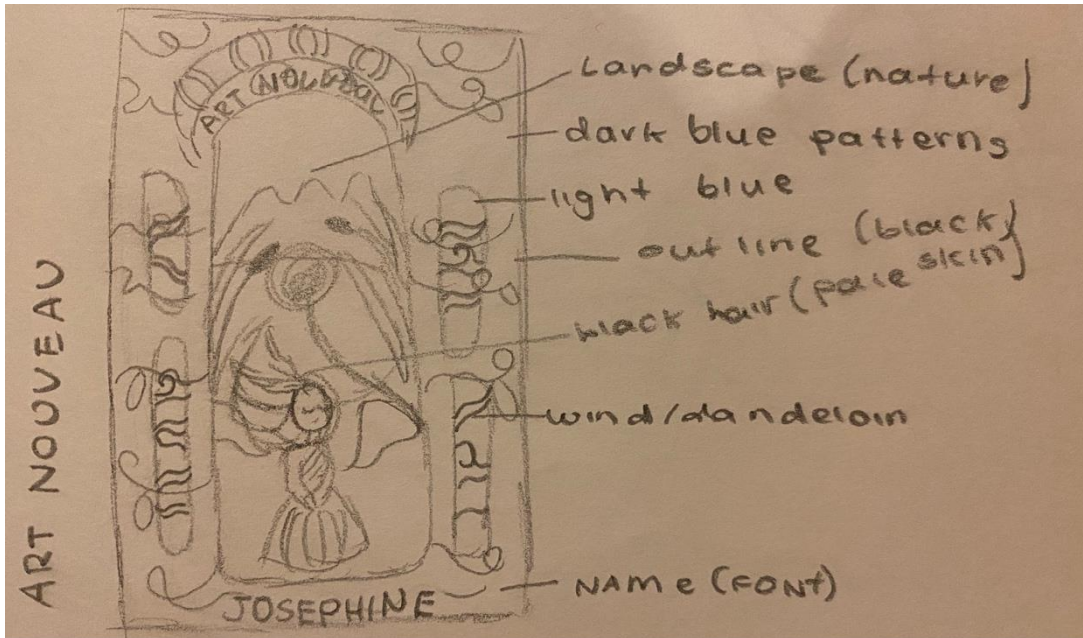 ART NOUVEAU
ART NOUVEAU
Landscape (nature)
dark blue patterns
light blue
outline (black)
black hair (pale skin)
wind/dandeloin
NAMe (FONt)
JOSEPHINE